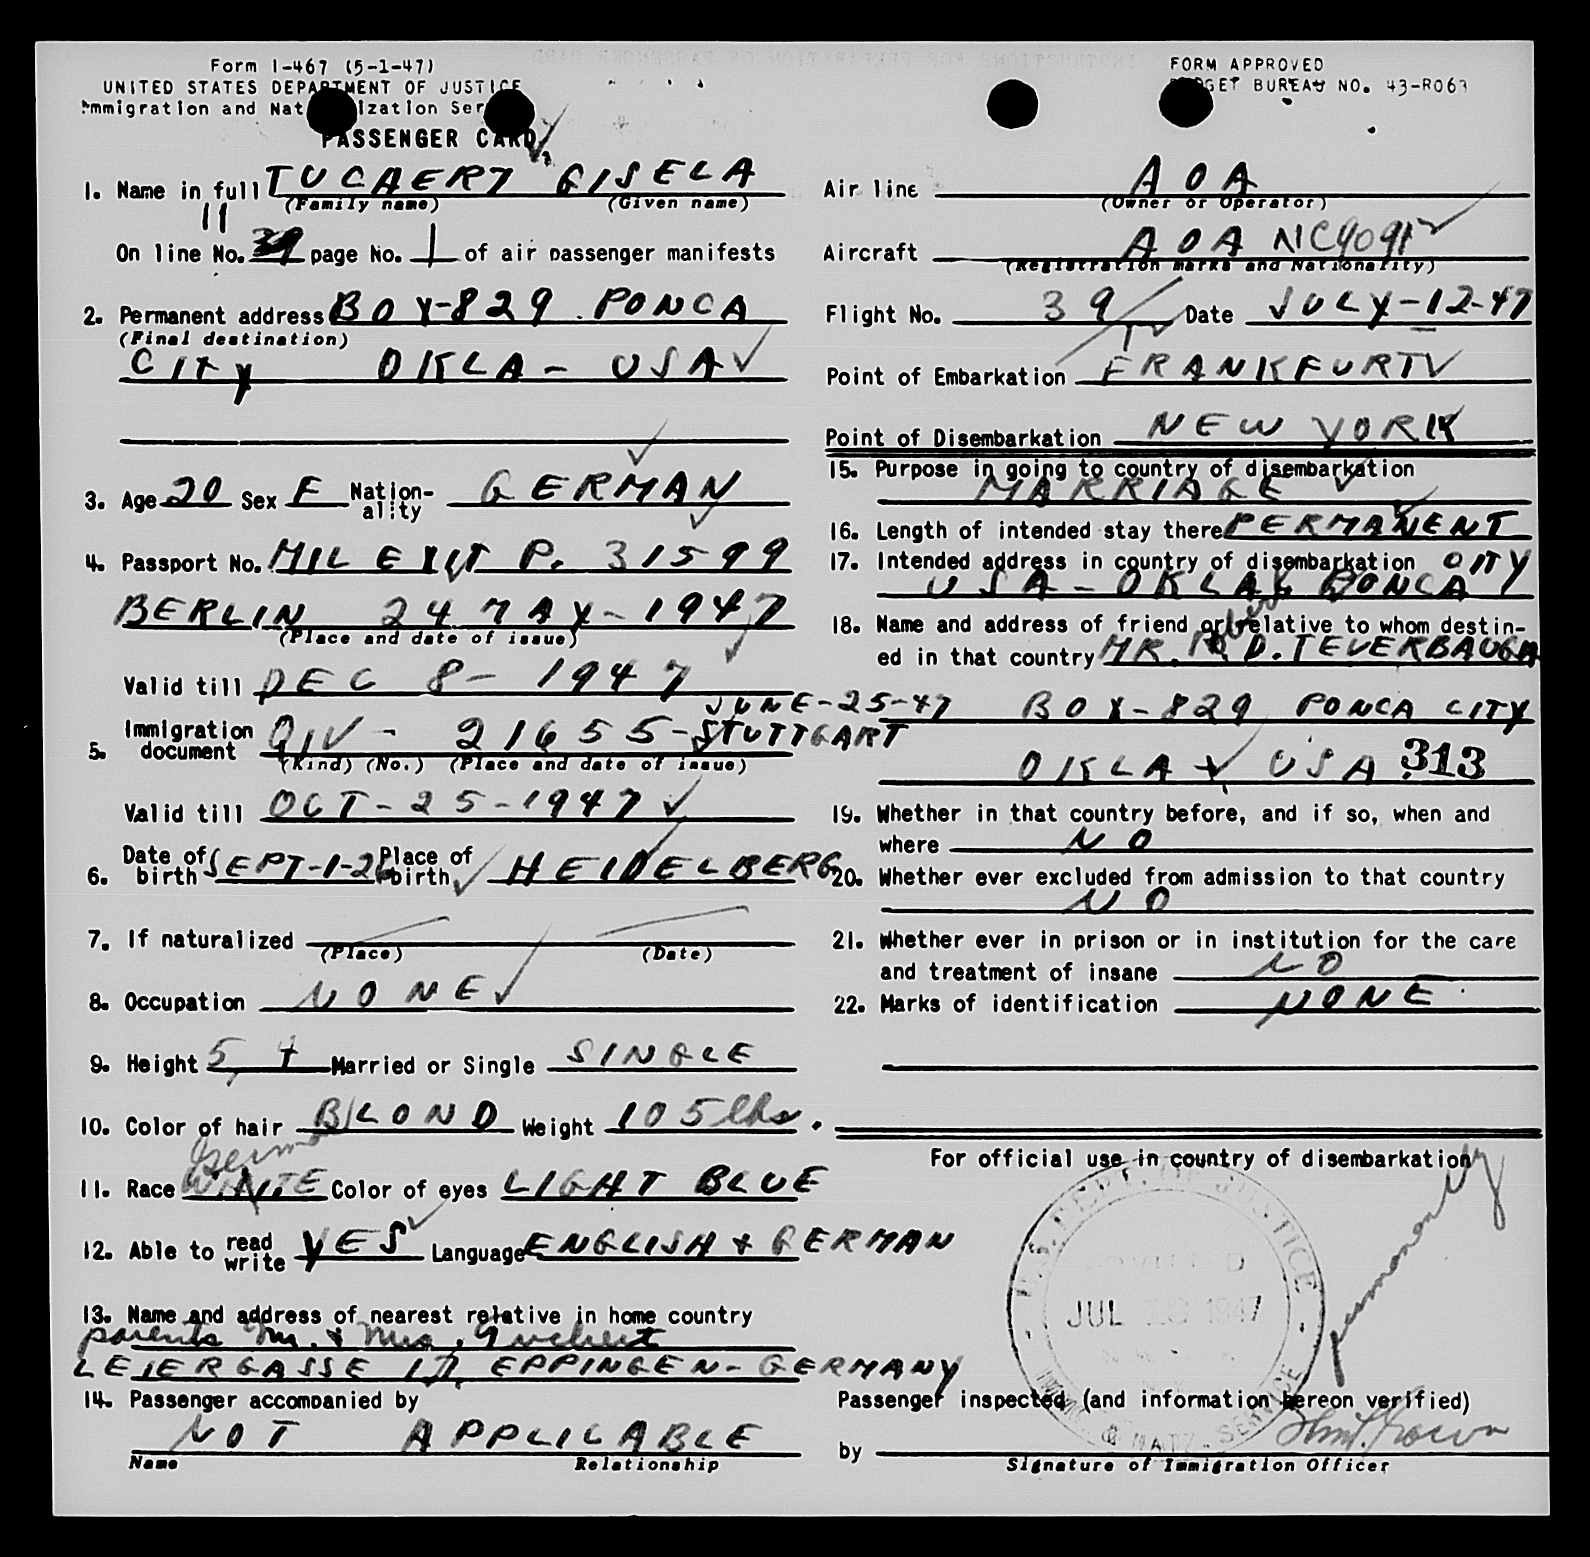 Form I-467 (5-1-47)
UNITED STATES DEPARTMENT OF JUSTICE
Immigration and Naturalization Ser
PASSENGER CARD
FORM APPROVED
BUDGET BUREAU NO. 43-R063
1. Name in full TUCAERT GISELA
(Family name) (Given name)
11
On line No. page No. 1 of air passenger manifests
2. Permanent address BOX-829 PONCA
(Final destination)
CITY OKLA - USA
3. Age 20 Sex F Nation-ality GERMAN
4. Passport No. MIL EXIT P. 31599
BERLIN 24 MAY-1947
(Place and date of issue)
Valid till DEC 8-1947
5. Immigration document QIV - 21655- JUNE-25-47 STUTTGART
(Kind) (No.) (Place and date of issue)
Valid till OCT-25-1947
6. Date of birth SEPT-1-26 Place of birth HEIDELBERG
7. If naturalized
(Place) (Date)
8. Occupation NONE
9. Height 5, 4 Married or Single SINGLE
10. Color of hair BLOND Weight 105 lbs.
German
11. Race WHITE Color of eyes LIGHT BLUE
12. Able to read write YES Language ENGLISH + GERMAN
13. Name and address of nearest relative in home country
parents Mr. & Mrs.
LEIERGASSE 17, EPPINGEN-GERMANY
14. Passenger accompanied by
NOT APPLICABLE
Name Relationship
Air line AOA
(Owner or Operator)
Aircraft AOA NC9091
(Registration marks and Nationality)
Flight No. 39 Date JULY-12-47
Point of Embarkation FRANKFURT
Point of Disembarkation NEW YORK
15. Purpose in going to country of disembarkation
MARRIAGE
16. Length of intended stay there PERMANENT
17. Intended address in country of disembarkation CITY
USA - OKLA, PONCA
18. Name and address of friend or relative to whom destin-
ed in that country MR. Robert D. TEVERBAUGH
BOX-829 PONCA CITY
OKLA USA 313
19. Whether in that country before, and if so, when and
where NO
20. Whether ever excluded from admission to that country
NO
21. Whether ever in prison or in institution for the care
and treatment of insane NO
22. Marks of identification NONE
For official use in country of disembarkation
permanently
U.S. DEPT. OF JUSTICE
ADMITTED
JUL 13 1947
Passenger inspected (and information hereon verified)
by
Signature of Immigration Officer